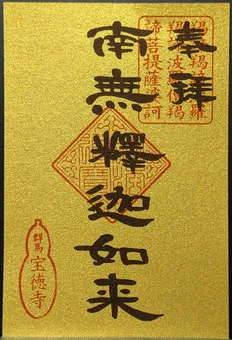 奉拜
羯諦羯諦波羅
羯諦波羅僧羯
諦菩提薩婆訶
南無釋迦如来
群馬
宝徳寺